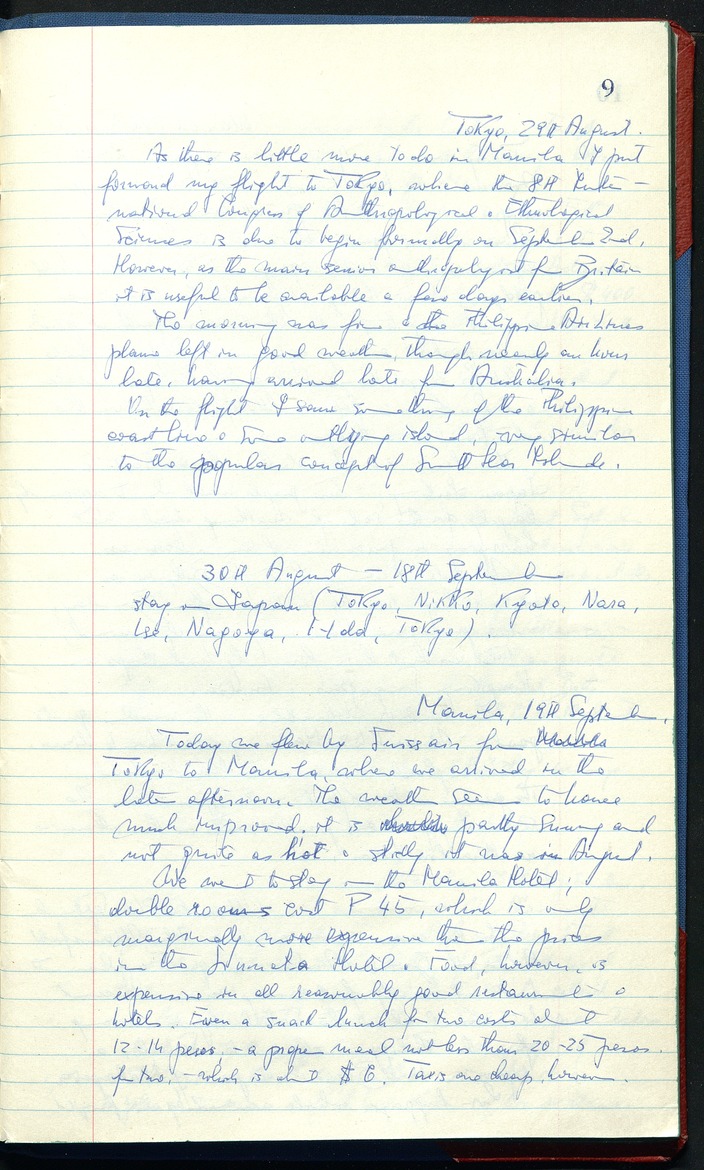 9
Tokyo, 29th August.
As there is little more to do in Manila I put
forward my flight to Tokyo, where the 8th Inter-
national Congress of Anthropological & Ethnological
Sciences is due to begin formally on September 2nd.
However, as the main senior anthropologist from Britain
it is useful to be available a few days earlier.
The morning was fine & the Philippine Air Lines
plane left in good weather, though nearly an hour
late, having arrived late from Australia.
On the flight I saw something of the Philippine
coast line & some outlying island, very similar
to the popular concept of South Seas Islands.
30th August – 18th September
stay in Japan (Tokyo, Nikko, Kyoto, Nara,
Ise, Nagoya, Tokyo).
Manila, 19th September.
Today we flew by Swissair from Manila
Tokyo to Manila, where we arrived in the
late afternoon. The weather seems to have
much improved. it is partly sunny and
not quite as hot & sticky it was in August.
We went to stay in the Manila Hotel;
double rooms cost P 45, which is only
marginally more expensive than the prices
in the Hotel. Food, however, is
expensive in all reasonably good restaurants &
hotels. Even a snack lunch for two costs about
12-14 pesos, – a proper meal not less than 20-25 pesos
for two, – which is about $ 6. Taxis are cheap, however.